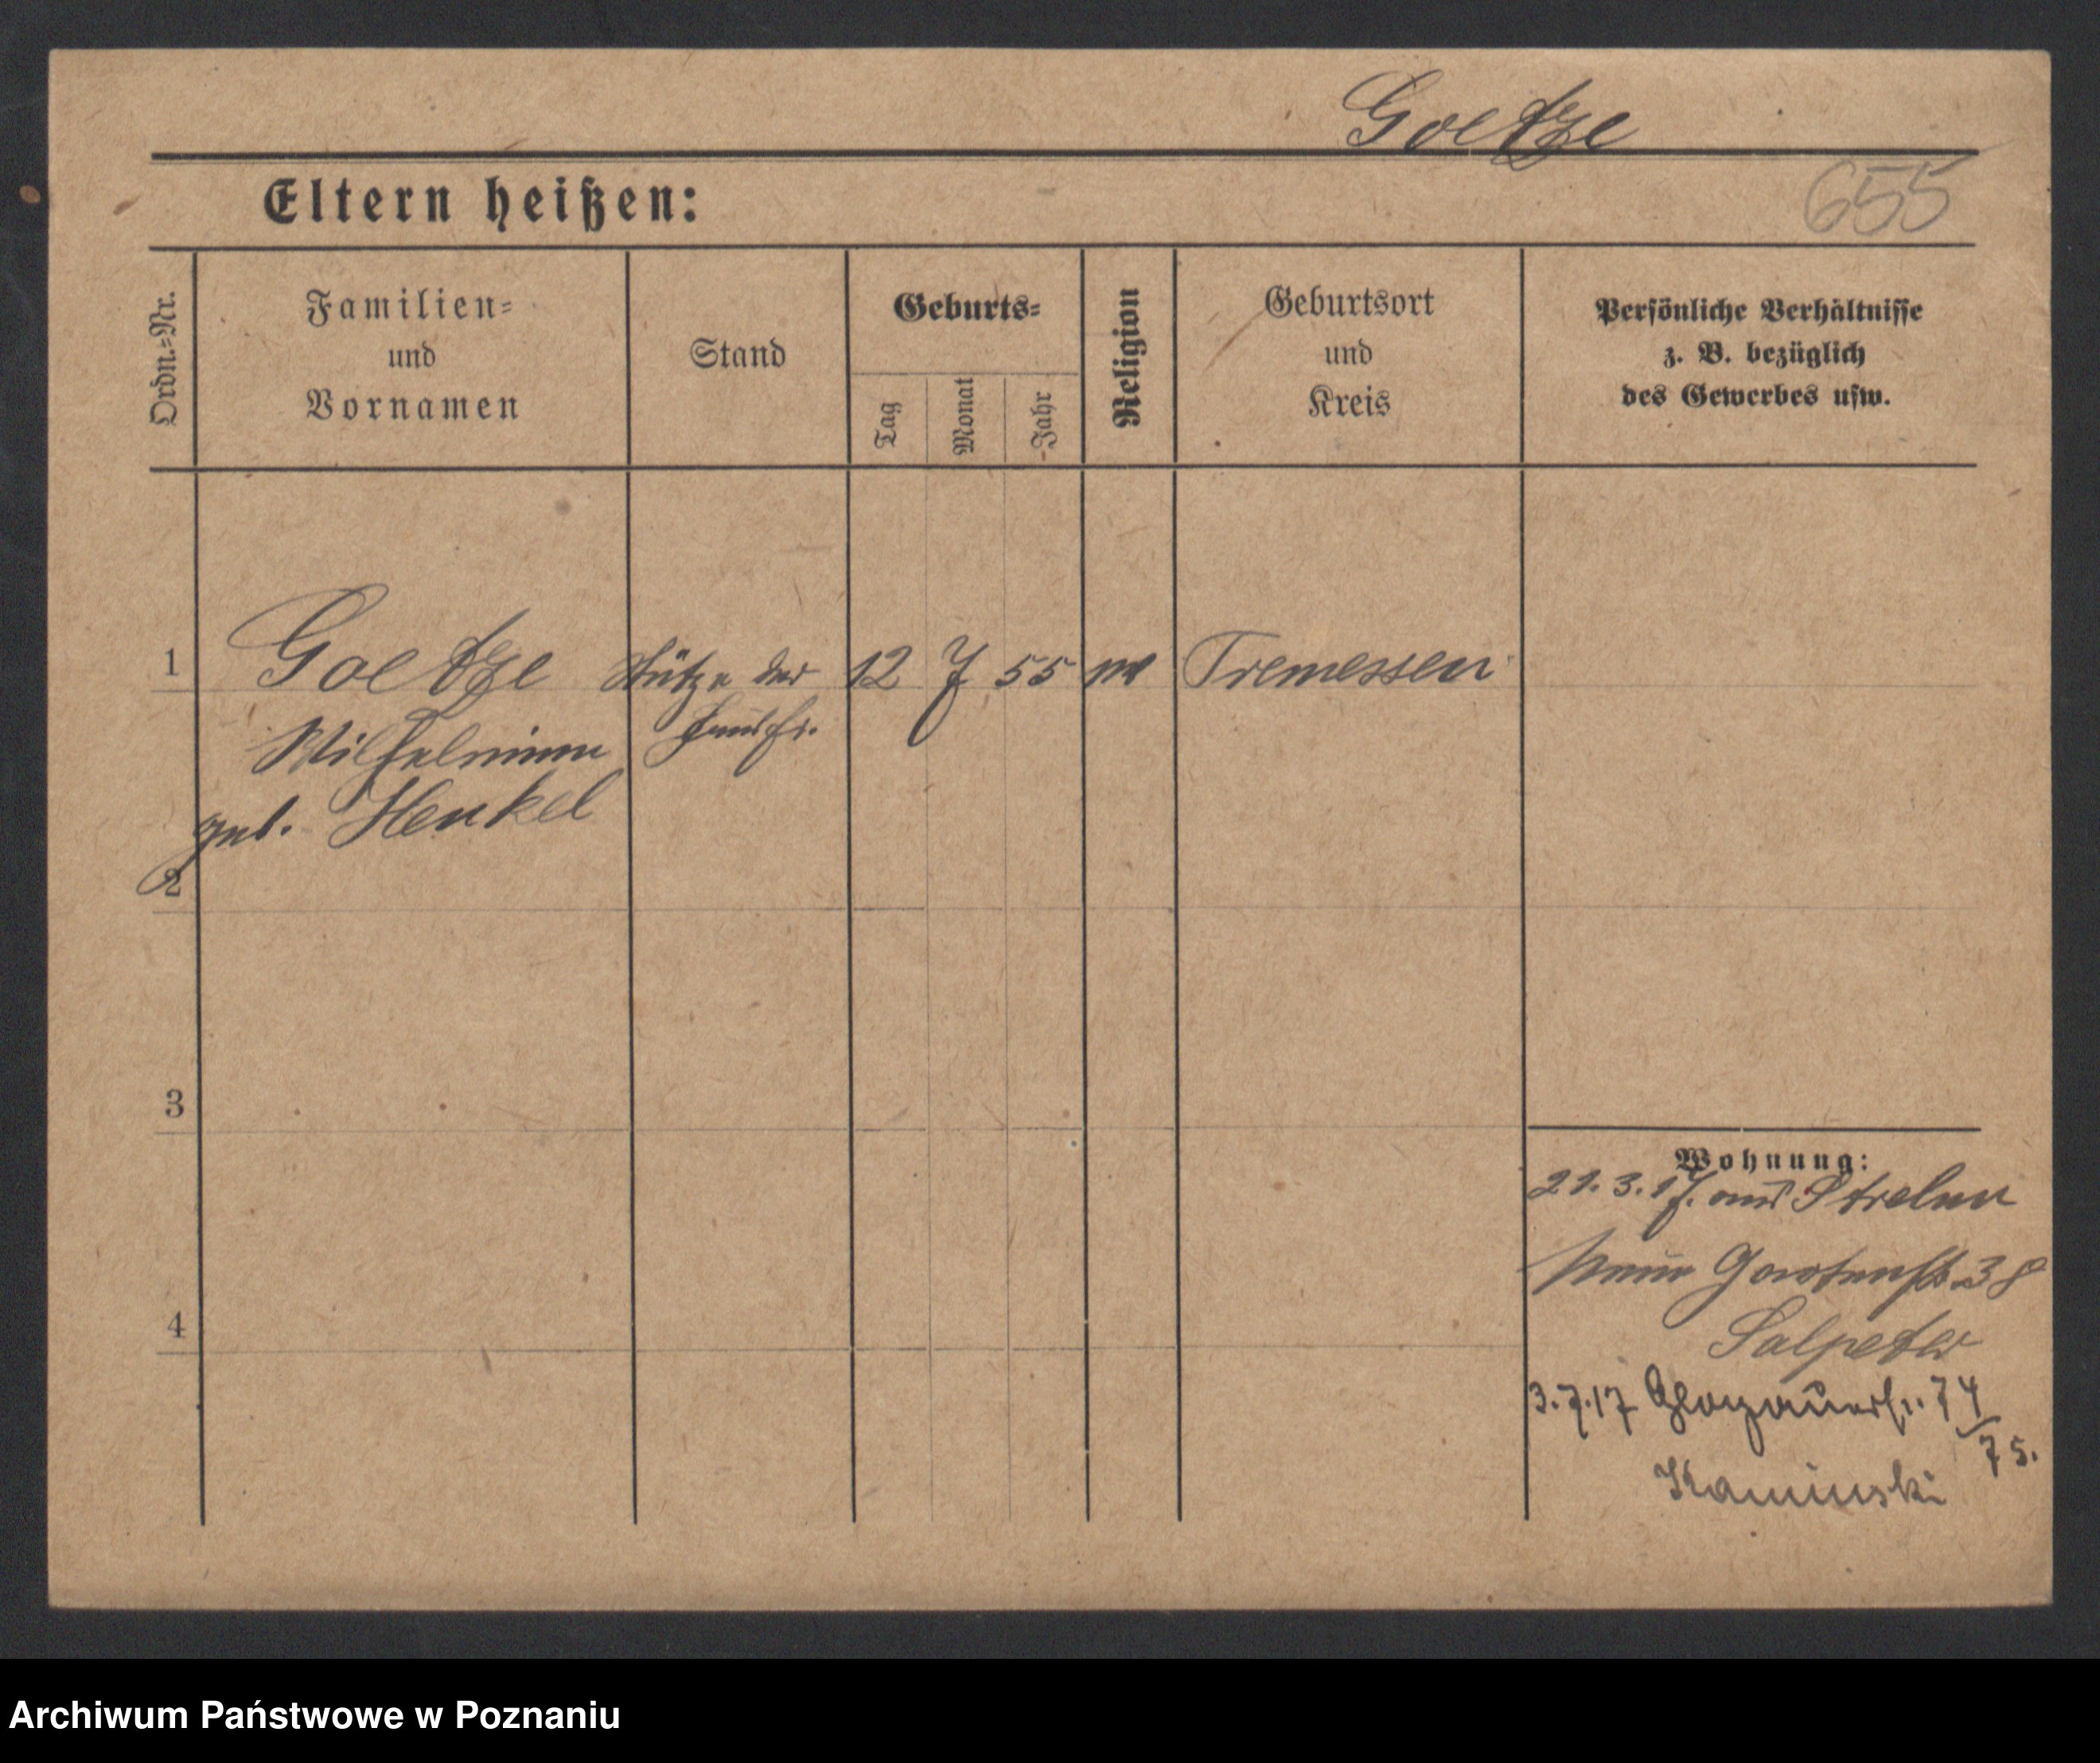 Goetze
655
Eltern heißen:
Ordn.-Nr.
Familien-
und
Vornamen
Stand
Geburts-
Tag
Monat
Jahr
Religion
Geburtsort
und
Kreis
Persönliche Verhältnisse
z. B. bezüglich
des Gewerbes usw.
1 Goetze Stütze der 12 7 55 Tremessen
Wilhelmine Hausfr.
geb. Henkel
2
3
4
Wohnung:
21.3.17. aus Strelno
Neue Gartenstr 38
Salpeter
3.7.17 Glogauerstr. 74/75.
Kaminski
Archiwum Państwowe w Poznaniu